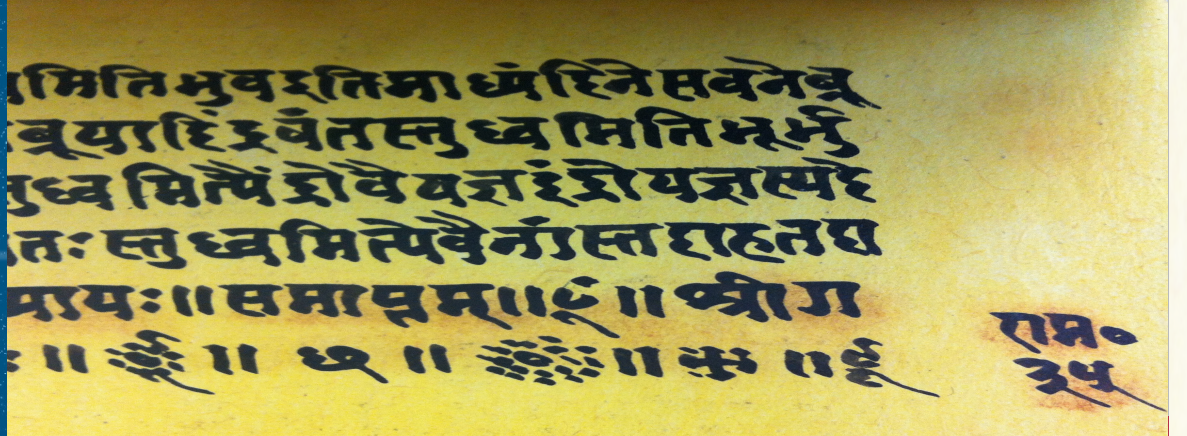 मितिभुवइतिमाध्यंदिनेसवनेब्रू
ब्रूयादिंद्रवंतस्तुध्वमितिभूर्भु
ध्वमित्यैंद्रोवैयज्ञइंद्रोयज्ञस्यदे
तःस्तुध्वमित्येवैनांस्तदाहतदा
यः॥समाप्तम्॥॥श्रीरा
॥ ॥ छ ॥ ॥ ॥
राम०
३५